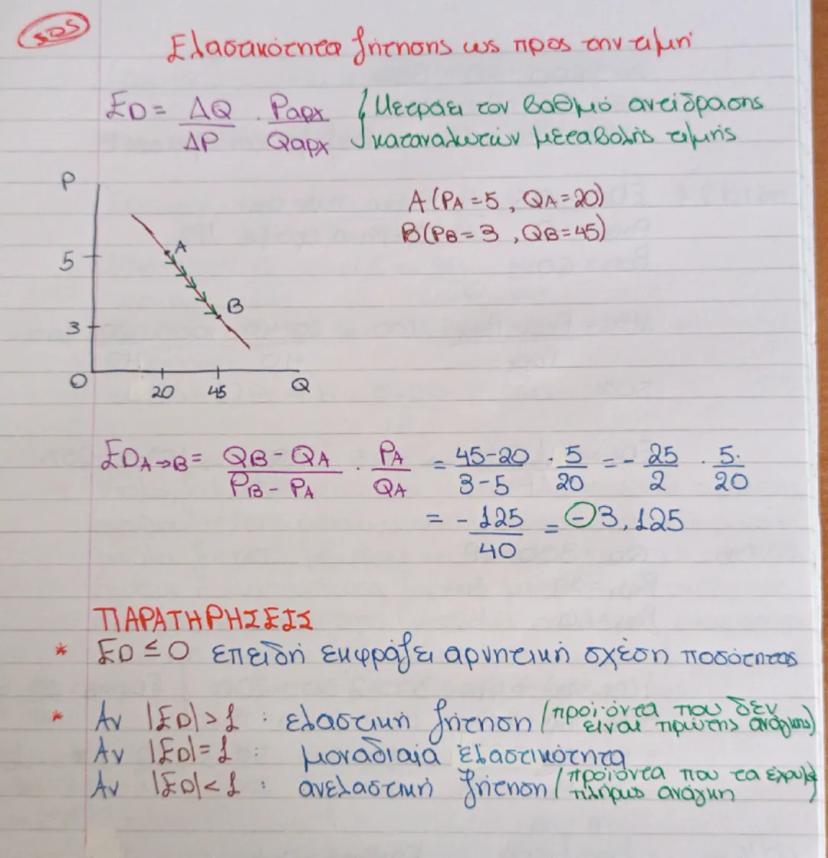 SOS
Ελαστικότητα ζήτησης ως προς την τιμή
ED = ΔQ/ΔP · Pαρχ/Qαρχ {Μετράει τον βαθμό αντίδρασης
καταναλωτών μεταβολής τιμής
P
A (PA = 5, QA = 20)
B (PB = 3, QB = 45)
A
5
B
3
O 20 45 Q
EDA→B = QB - QA/PB - PA · PA/QA = 45-20/3-5 · 5/20 = - 25/2 · 5/20
= - 125/40 = -3,125
ΠΑΡΑΤΗΡΗΣΕΙΣ
* ED ≤ 0 επειδή εκφράζει αρνητική σχέση ποσότητας
* Αν |ED| > 1 : ελαστική ζήτηση (προϊόντα που δεν
είναι πρώτης ανάγκης)
Αν |ED| = 1 : μοναδιαία ελαστικότητα
Αν |ED| < 1 : ανελαστική ζήτηση (προϊόντα που τα έχουμε
πλήρως ανάγκη